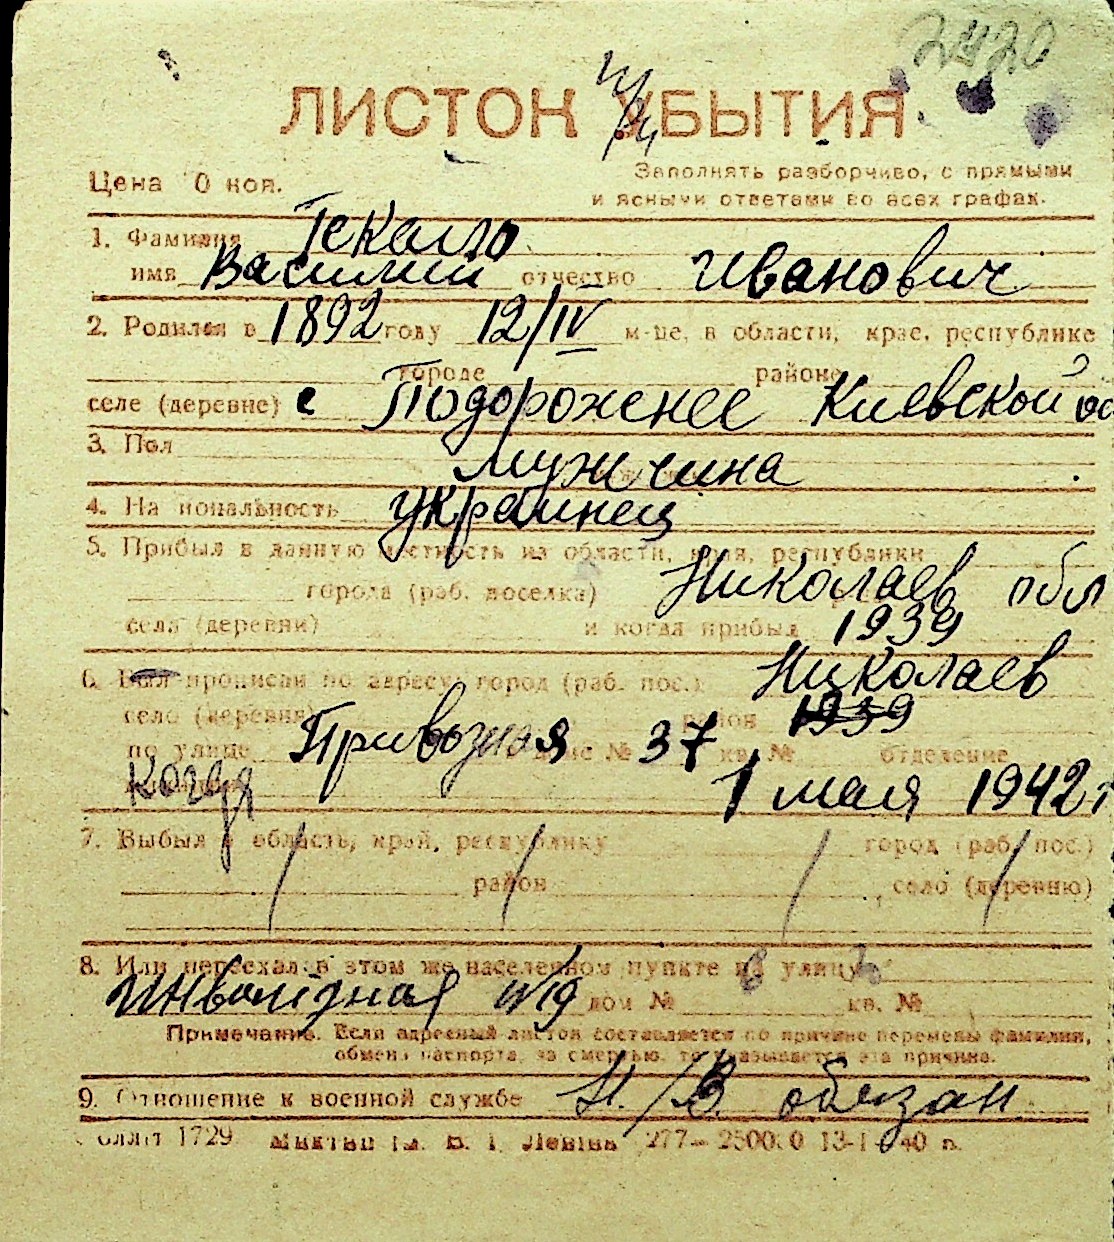 2420
ЛИСТОК УБЫТИЯ
Цена 0 коп.
Заполнять разборчиво, с прямыми
и ясными ответами во всех графах.
1. Фамилия
имя Василий отчество Иванович
2. Родился в 1892 году 12/IV м-це, в области, крае, республике
городе районе
селе (деревне) с Подорожнее Киевской об
3. Пол мужчина
4. Национальность украинец
5. Прибыл в данную местность из области, края, республики
города (раб. поселка) Николаев обл
села (деревни) и когда прибыл 1939
6. Был прописан по адресу: город (раб. пос.) Николаев
село (деревня) район 1939
по улице Привозная дом № 37 кв. № отделение
когда 1 мая 1942 г
7. Выбыл в область, край, республику город (раб. пос.)
район село (деревню)
8. Или переехал в этом же населенном пункте на улицу
Инвалидная №19 дом № кв. №
Примечание. Если адресный листок составляется по причине перемены фамилии,
обмена паспорта, за смертью, то указывается эта причина.
9. Отношение к военной службе Н./В. обязан
1729 277— 2500.0 13-1 40 р.